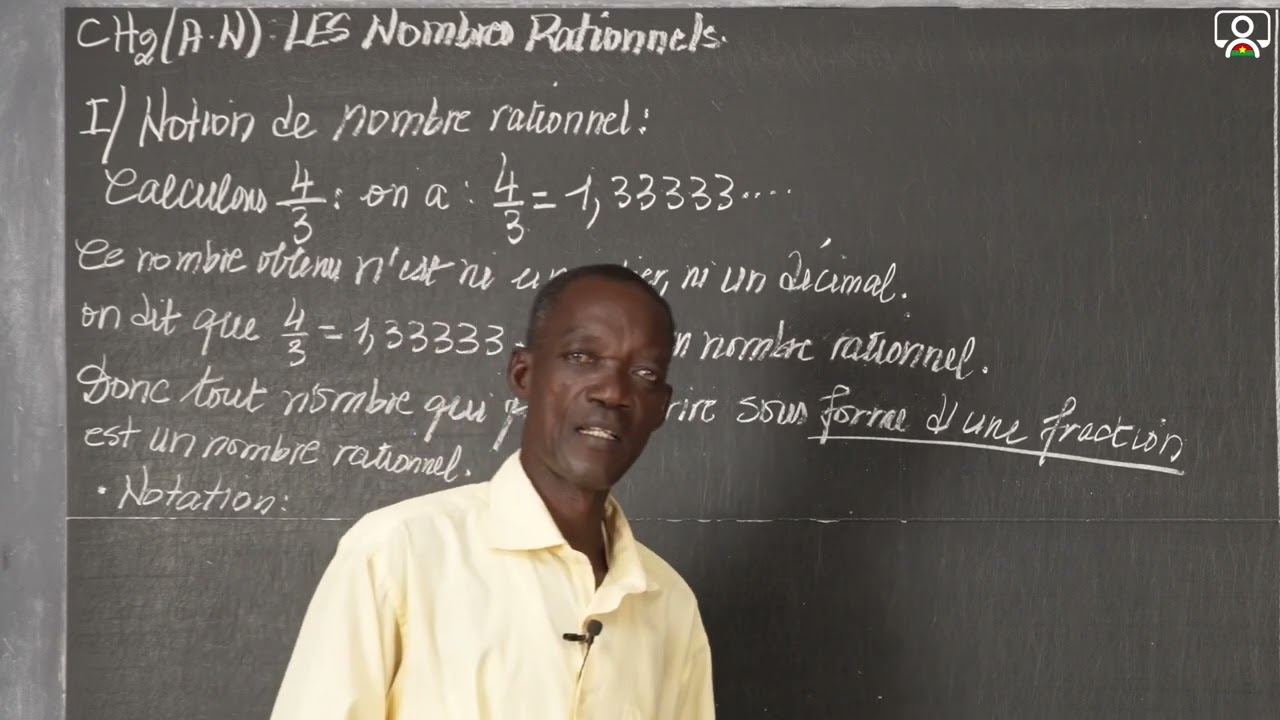 CH2 (A.N) : LES Nombres Rationnels.
I/ Notion de nombre rationnel :
Calculons 4/3 : on a : 4/3 = 1,33333....
Ce nombre obtenu n'est ni un ni un décimal.
on dit que 4/3 = 1,33333 nombre rationnel.
Donc tout nombre qui sous forme d'une fraction
est un nombre rationnel.
. Notation :